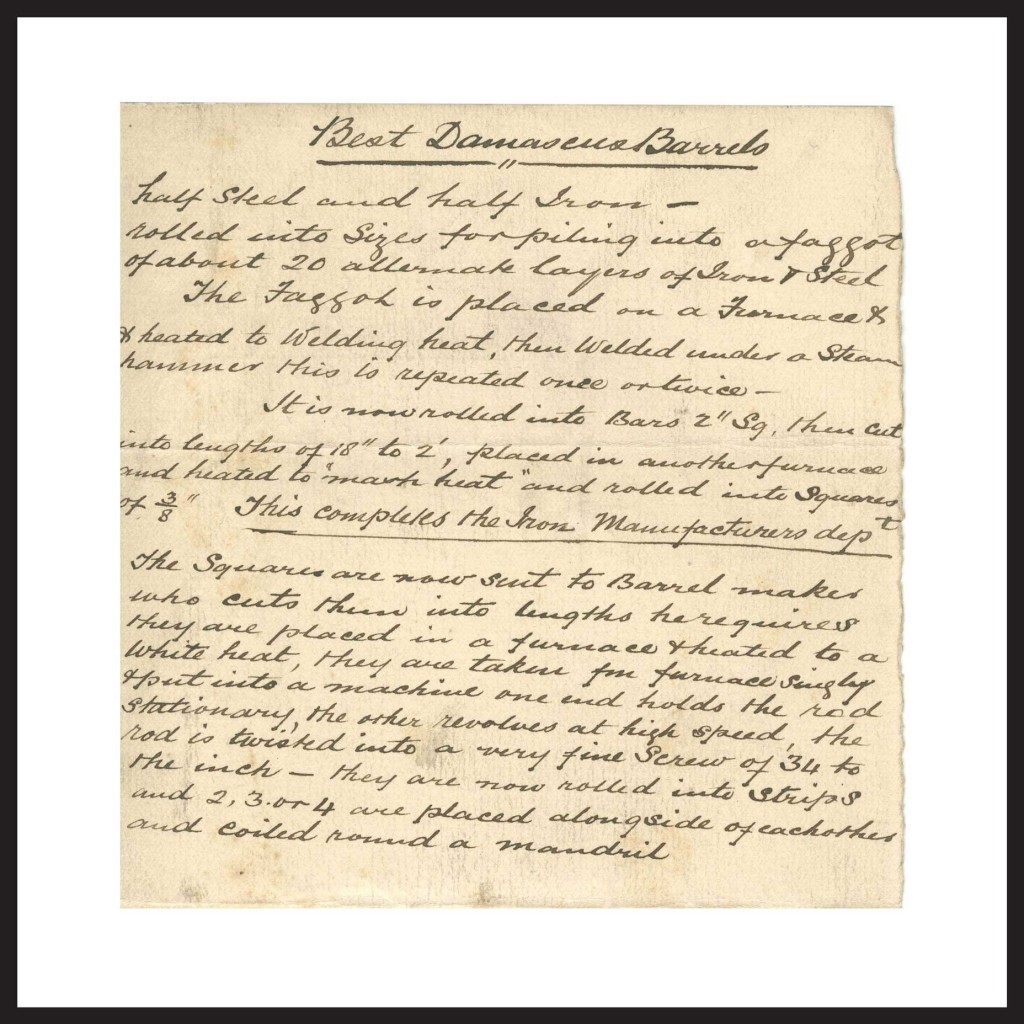 Best Damascus Barrels
"
half Steel and half Iron –
rolled into Sizes for piling into a faggot
of about 20 alternate layers of Iron & Steel
The Faggot is placed on a Furnace &
& heated to Welding heat, then Welded under a Steam
hammer this is repeated once or twice –
It is now rolled into Bars 2" Sq, then cut
into lengths of 18" to 2', placed in another furnace
and heated to "mash heat" and rolled into Squares
of 3/8" This completes the Iron Manufacturers dept
The Squares are now sent to Barrel maker
who cuts them into lengths he requires
they are placed in a furnace & heated to a
White heat, they are taken fm furnace singly
& put into a machine one end holds the rod
stationary, the other revolves at high speed, the
rod is twisted into a very fine Screw of 34 to
the inch – they are now rolled into strips
and 2, 3. or 4 are placed alongside of each other
and coiled round a mandril